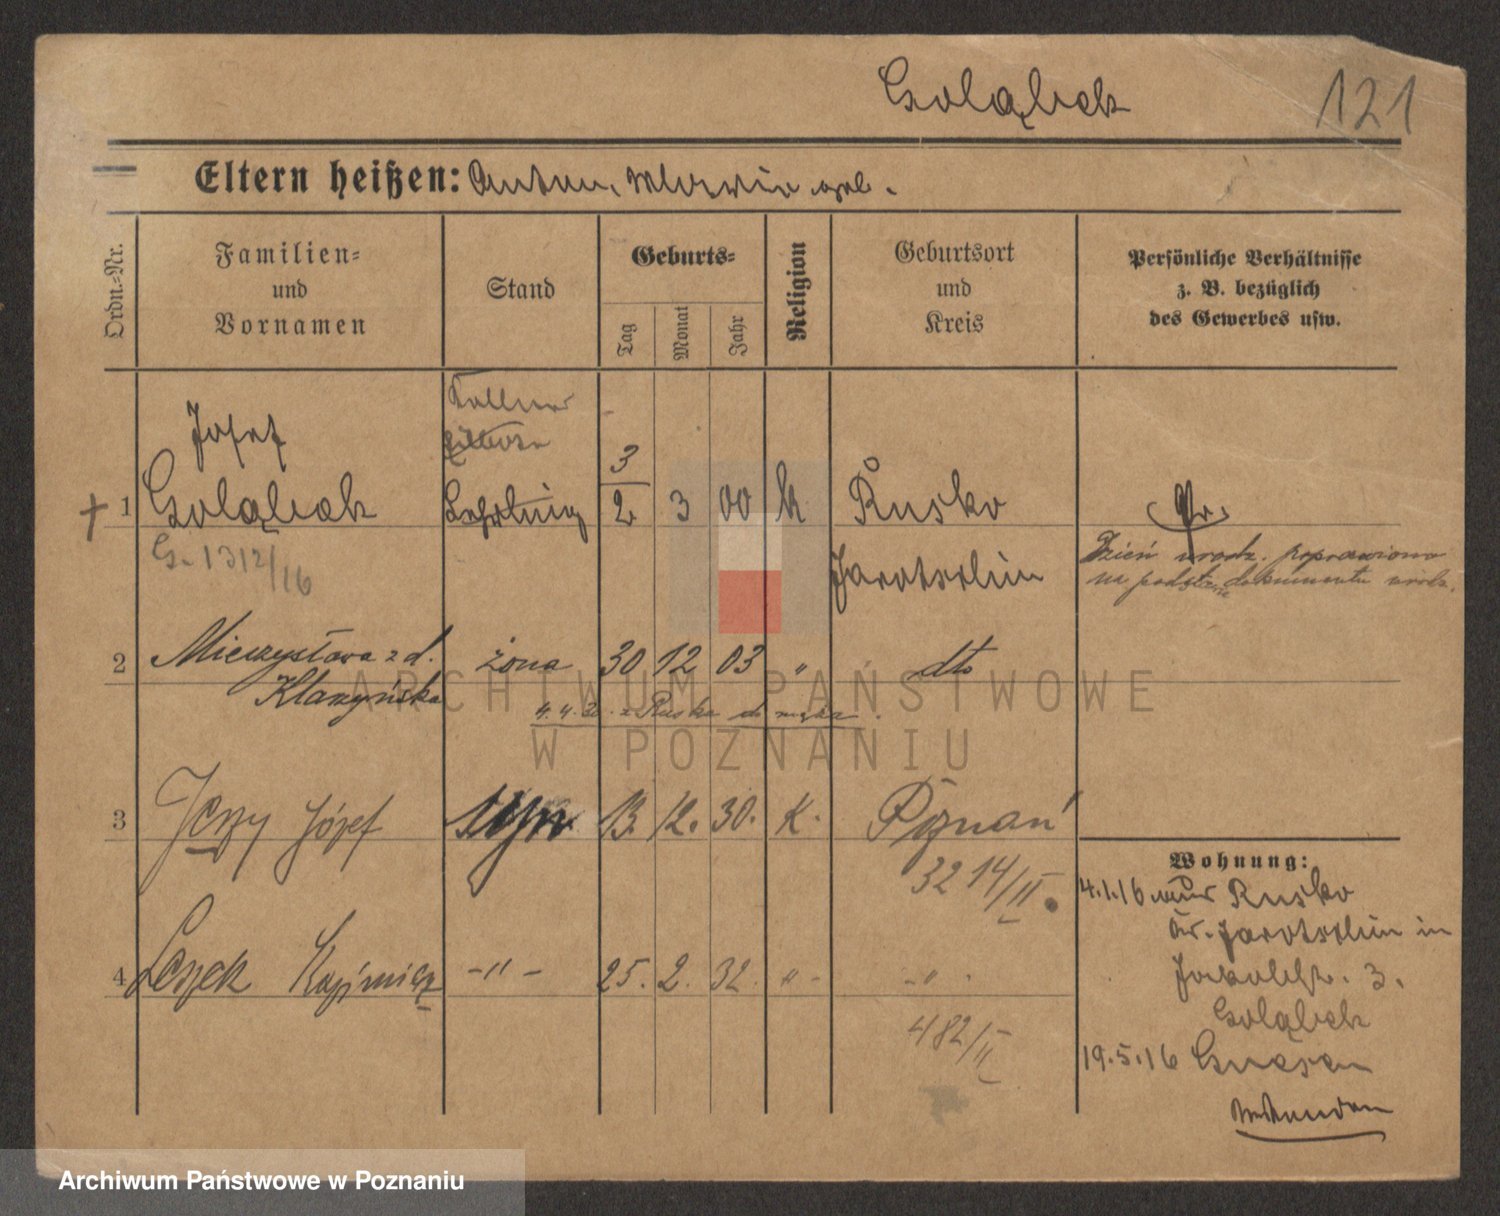 Goląbek
121
Eltern heißen: Anton, Maria geb.
Ordn.-Nr.
Familien-
und
Vornamen
Stand
Geburts-
Tag
Monat
Jahr
Religion
Geburtsort
und
Kreis
Persönliche Verhältnisse
z. B. bezüglich
des Gewerbes usw.
Kellner
Josef
3
1 Goląbek Lehrling 2 3 00 k Rusko Pr.
G. 1312/16
Jarotschin
Dzień urodz. poprawiono
na podstawie dokumentu urodz.
2 Mieczysława z d. żona 30 12 03 " dto
Klarzyńska
4.4.30. z Ruska do męża.
3 Jerzy Józef syn 13. 12. 30. K. Poznań
3214/II.
4 Leszek Kazimierz -"- 25. 2. 32. " -"-
482/II
Wohnung:
4.1.16 aus Rusko
Kr. Jarotschin in
3.
Goląbek
19.5.16 Gnesen
ARCHIWUM PAŃSTWOWE
W POZNANIU
Archiwum Państwowe w Poznaniu